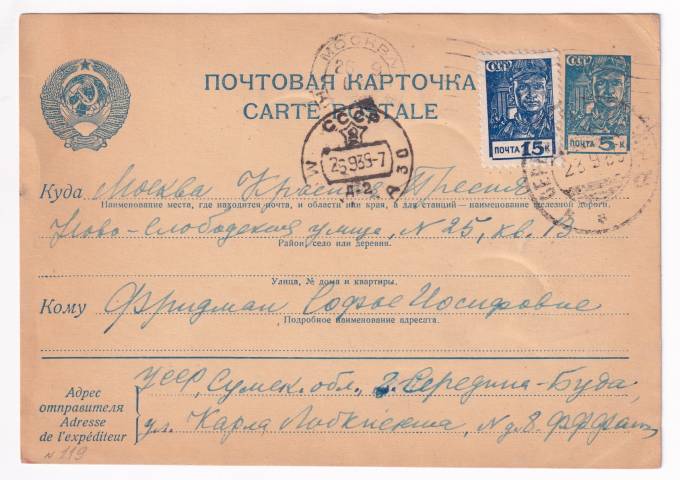 ПОЧТОВАЯ КАРТОЧКА
CARTE POSTALE
МОСКВА
СССР
ПОЧТА 15 К
СССР
ПОЧТА 5 К
СССР
26 9 39-7
23 9 39
Куда Москва Красная Пресня
Наименование места, где находится почта, и области или края, а для станций – наименование железной дороги.
Ново-Слободская улица, N 25, кв. 13
Район, село или деревня.
Улица, № дома и квартиры.
Кому Фридман Софье Иосифовне
Подробное наименование адресата.
Адрес отправителя
Adresse de l'expéditeur
УССР, Сумск. обл., г. Середина-Буда,
ул. Карла Либкнехта, N д 8.
N 119